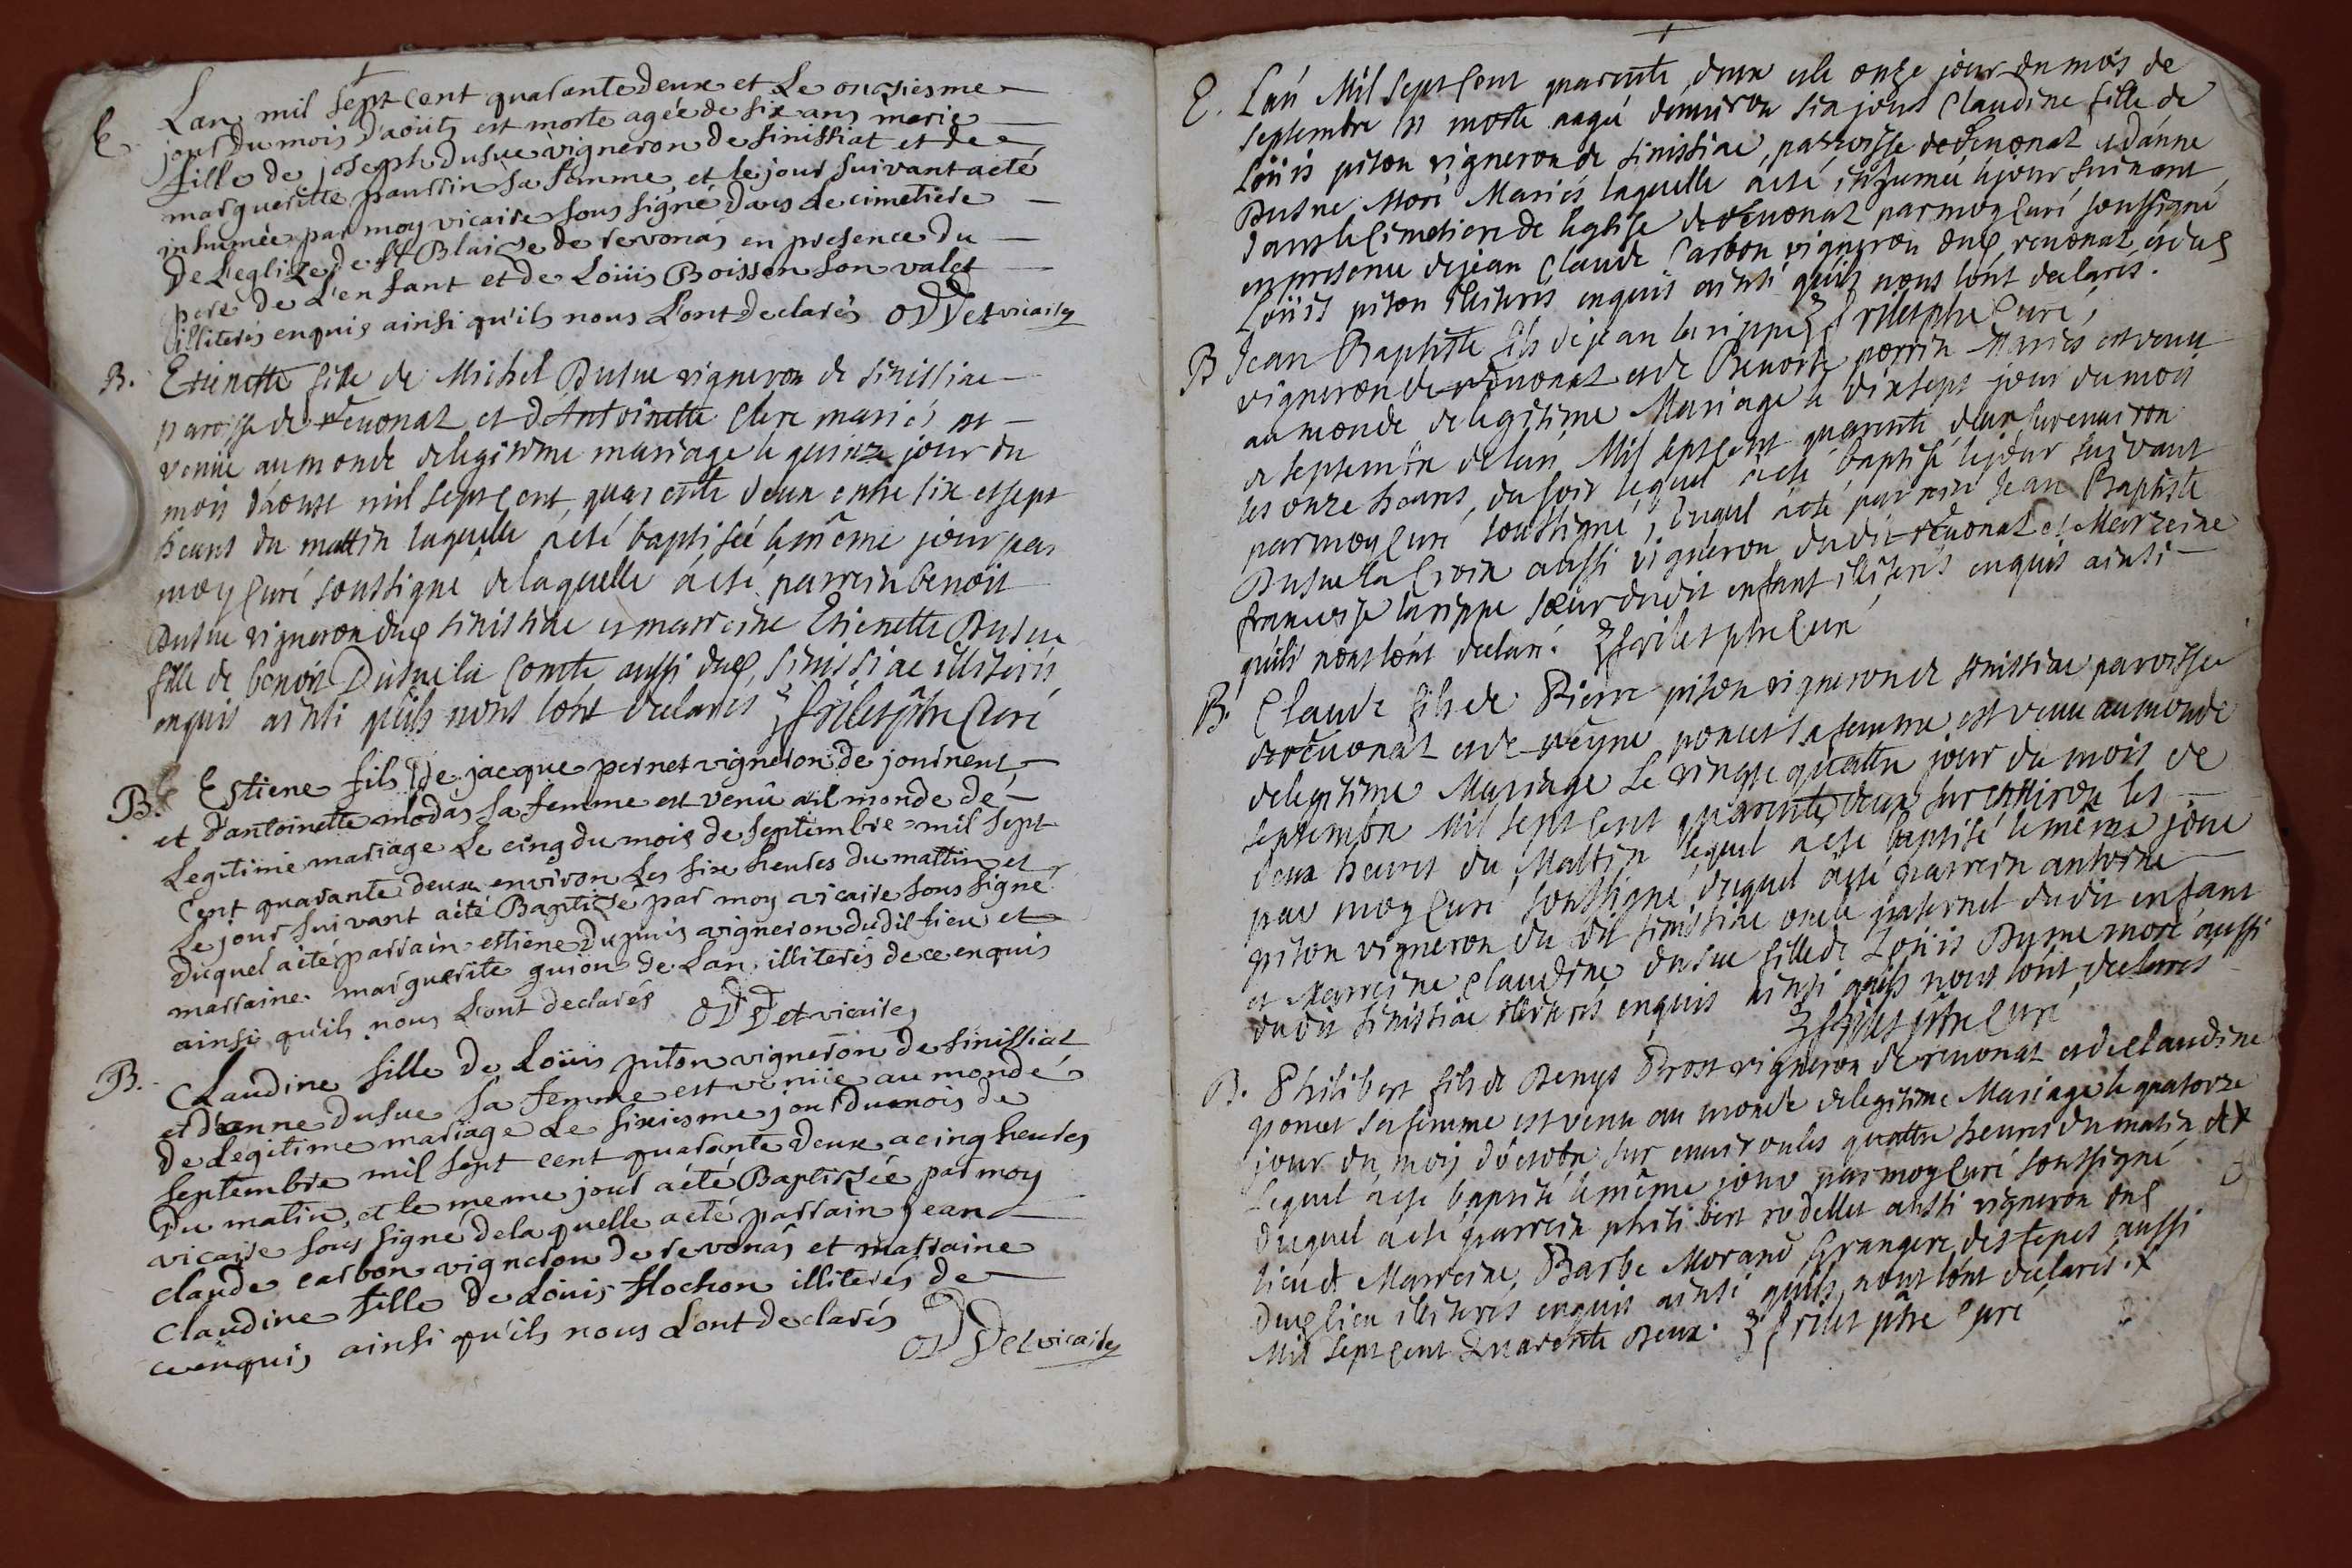 E. Lan mil sept cent quarante deux et Le onziesme
jour du mois d'aoüts est morte agée de six ans marie
fille de joseph dusue vigneron de sinissiat et de
margueritte paussin sa femme, et le jour suivant a eté
inhumée par moy vicaire sous signé dans Le cimetiere
de L'eglize de St Blaize de revonas en presence du
pere de L'enfant et de Loüis Boisson son valet
illiterés enquis ainsi qu'ils nous L'ont declarés vicaire
B. Etienette fille de Michel Dusue vigneron de sinissiac
paroisse de revonat et d'Antoinette Clerc mariés est
venüe au monde de legitime mariage le quinze jour du
mois d'aoust mil sept cent quarente deux entre six et sept
heures du mattin laquelle a eté baptisée le même jour par
moy Curé soussigné de laquelle a eté parrein benoit
Dusue vigneron dud sinissiac et marreine Etienette Dusue
fille de benoit Dusue la Comte aussi dud sinissiac illiterés
enquis ainsi quils nous lont declarés frilet ptre Curé
B. Estiene fils de jacque pernet vigneron de journent
et d'antoinette modas sa femme est venû au monde de
Legitime mariage Le cinq du mois de septembre mil sept
Cent quarante deux environ Les six heures du mattin et
Le jour suivant a eté Baptizé par moy vicaire sous signé
duquel a eté parrain estiene dupuis vigneron dudit lieu et
marraine marguerite guion de Lan illiterés de ce enquis
ainsi qu'ils nous L'ont declarés vicaire
B. Claudine fille de Loüis piton vigneron de sinissiat
et d'anne dusue sa femme est venüe au monde
de Legitime mariage Le sixiesme jour du mois de
septembre mil sept cent quarante deux a cinq heures
du matin, et le meme jour a eté Baptizée par moy
vicaire sous signé de la quelle a eté parrain jean
claude carbon vigneron de revonas et marraine
claudine fille de Loüis flochon illiterés de
ce enquis ainsi qu'ils nous L'ont declarés vicaire
E. Lan Mil sept Cent quarente deux et le onze jour du mois de
septembre est morte aagée denviron six jours Claudine fille de
Loüis piton vigneron de sinissiac, paroisse de revonat et dánne
Dusue Moré Mariés laquelle a eté inhumée le jour suivant
dans le Cimetiere de leglise de revonat par moy Curé soussigné
en presence de jean Claude Carbon vigneron dud revonat et dud
Loüis piton illiterés enquis ainsi quils nous lont declarés.
frilet ptre Curé
B Jean Baptiste fils de jean larippe
vigneron de revonat et de Benoite perrin Mariés est venu
au monde de legitime Mariage le dix sept jour du mois
de septembre de lan Mil sept Cent quarente deux sur environ
les onze heures du soir lequel a eté baptisé le jour suivant
par moy Curé soussigné, duquel a eté parrein Jean Baptiste
Dusue la Croix aussi vigneron dudit revonat et Marreine
francoise larippe sœur dudit enfant illiterés enquis ainsi
quils nous lont declaré. frilet ptre Curé
B. Claude fils de Pierre piton vigneron de sinissiac paroisse
de revonat et de reyne poncet sa femme est venu au monde
de legitime Mariage Le vingte quattre jour du mois de
septembre Mil sept Cent quarente deux sur environ les
deux heures du Mattin lequel a eté baptisé le même jour
par moy Curé soussigné duquel a eté parrein antoine
piton vigneron du dit sinissiac oncle paternel dudit enfant
et Marreine Claudine dusue fille de Loüis Dusue moré aussi
dudit sinissiac illiterés enquis ainsi quils nous lont declarés
frilet ptre Curé
B. Philibert fils de Denys Drost vigneron de revonat et de Claudine
poncet sa femme est venu au monde de legitime Mariage le quatorze
jour du mois d'octobre sur environ les quattre heures du matin
Lequel a eté baptisé le même jour par moy Curé soussigné
duquel a eté parrein philibert rodellet aussi vigneron dud
lieu et Marreine, Barbe Morand Grangere aussi
dud lieu illiterés enquis ainsi quils nous lont declarés
Mil sept Cent Quarente deux. frilet ptre Curé